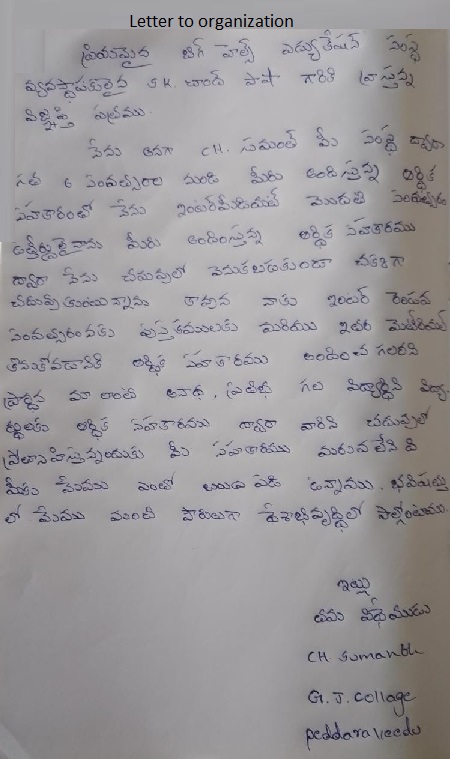 Letter to organization
ప్రియమైన బిగ్ హెల్ప్ ఎడ్యుకేషన్ సంస్థ
వ్యవస్థాపకులైన S.K. చాంద్ పాషా గారికి వ్రాస్తున్న
విజ్ఞప్తి పత్రము.
నేను అనగా CH. సుమంత్ మీ సంస్థ ద్వారా
గత 6 సంవత్సరాల నుండి మీరు అందిస్తున్న ఆర్థిక
సహకారంతో నేను ఇంటర్మీడియట్ మొదటి సంవత్సరం
ఉత్తీర్ణుడైనాను మీరు అందిస్తున్న ఆర్థిక సహకారము
ద్వారా నేను చదువులో వెనుకబడకుండా చక్కగా
చదువుకుంటున్నాను కావున నాకు ఇంటర్ రెండవ
సంవత్సరంనకు పుస్తకములకు మరియు ఇతర మెటీరియల్
కొనుకోవడానికి ఆర్థిక సహకారము అందించ గలరని
ప్రార్థన మా లాంటి అనాథ, ప్రతిభ గల విద్యార్థిని విద్యా
ర్థులకు ఆర్థిక సహకారము ద్వారా వారిని చదువులో
ప్రోత్సాహిస్తున్నందుకు మీ సహకారము మరువలేనిది
మీకు మేము ఎంతో ఋణ పడి ఉన్నాము. భవిషత్తు
లో మేము మంచి పౌరులుగా దేశాభివృద్ధిలో పాల్గొంటాము.
ఇట్లు
తమ విధేయుడు
CH Sumanth
G. J. Collage
peddaraveedu